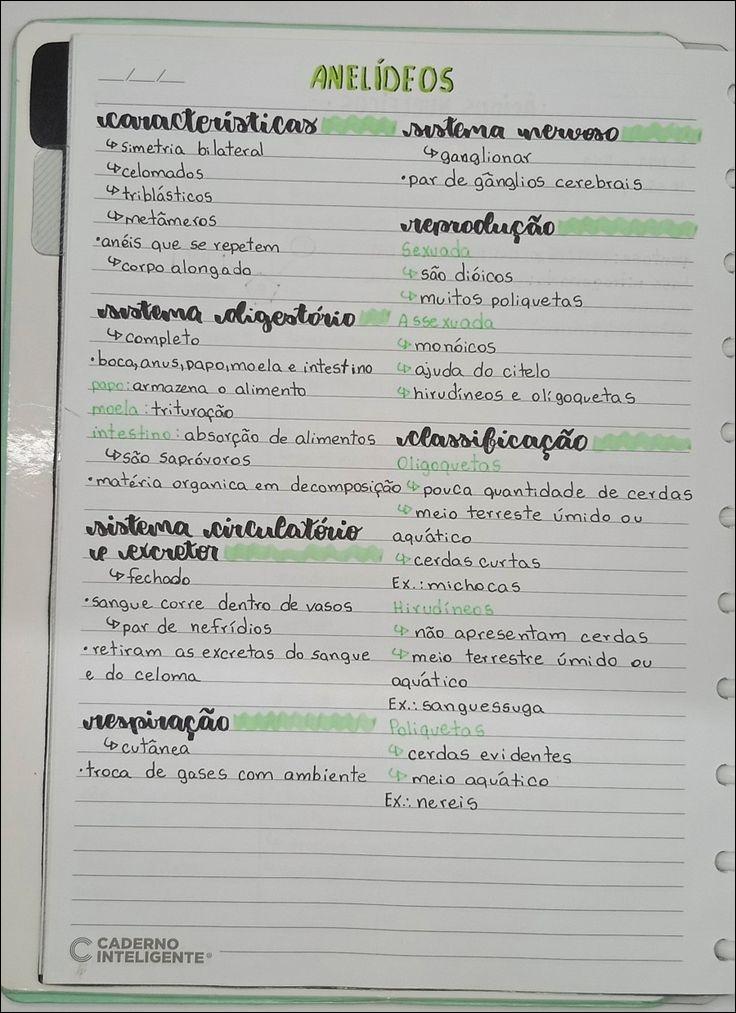 __/__/__
ANELÍDEOS
características
↳simetria bilateral
↳celomados
↳triblásticos
↳metâmeros
•anéis que se repetem
↳corpo alongado
sistema digestório
↳completo
•boca, anus, papo, moela e intestino
papo: armazena o alimento
moela: trituração
intestino: absorção de alimentos
↳são sapróvoros
•matéria organica em decomposição
sistema circulatório
e excretor
↳fechado
•sangue corre dentro de vasos
↳par de nefrídios
•retiram as excretas do sangue
e do celoma
respiração
↳cutânea
•troca de gases com ambiente
sistema nervoso
↳ganglionar
•par de gânglios cerebrais
reprodução
Sexuada
↳são dióicos
↳muitos poliquetas
Assexuada
↳monóicos
↳ajuda do citelo
↳hirudíneos e olígoquetas
classificação
Oligoquetas
↳pouca quantidade de cerdas
↳meio terreste úmido ou
aquático
↳cerdas curtas
Ex.: michocas
Hirudíneos
↳não apresentam cerdas
↳meio terrestre úmido ou
aquático
Ex.: sanguessuga
Poliquetas
↳cerdas evidentes
↳meio aquático
Ex.: nereis
CADERNO
INTELIGENTE®